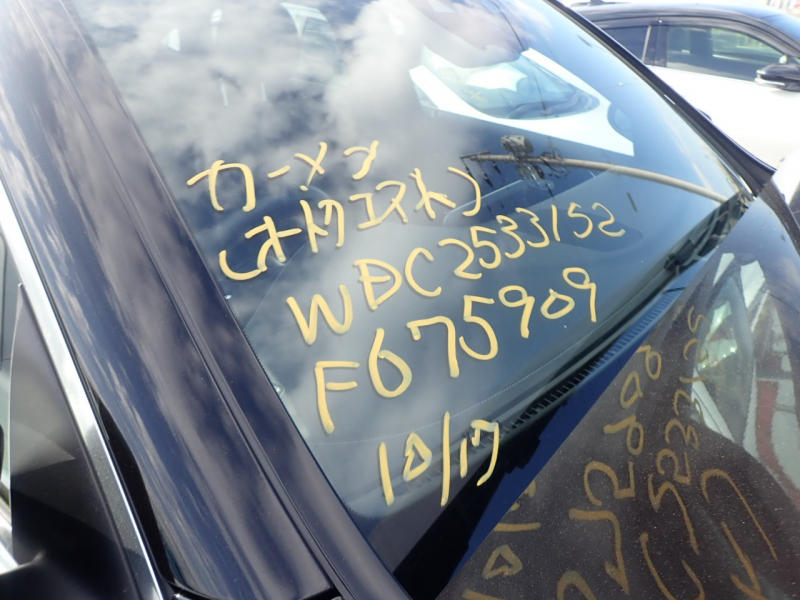 カーメン
(オトクエスト)
WDC2533152
F675909
10/17